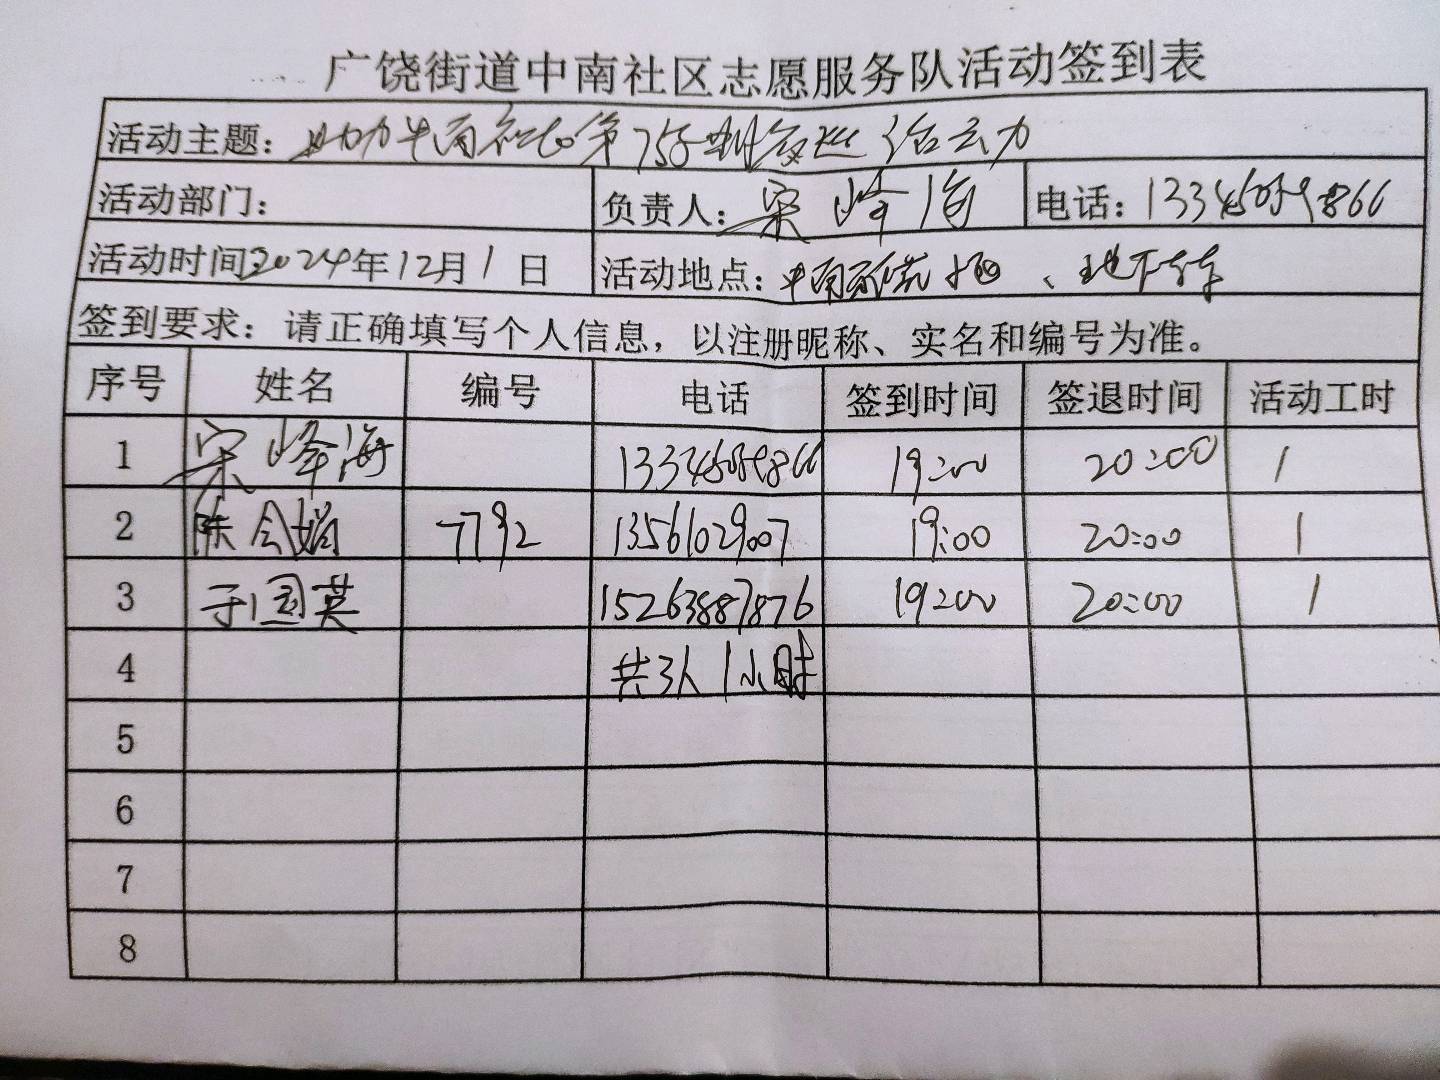 广饶街道中南社区志愿服务队活动签到表
活动主题：助力中南社区第75次 巡 活动
活动部门： 负责人：宋峰海 电话：
活动时间2024年12月1日 活动地点：中南 、地下车
签到要求：请正确填写个人信息，以注册昵称、实名和编号为准。
序号 姓名 编号 电话 签到时间 签退时间 活动工时
1 宋峰海 19:00 20:00 1
2 陈会娟 7792 13561029007 19:00 20:00 1
3 于国英 15263887876 19:00 20:00 1
4 共3人1小时
5
6
7
8